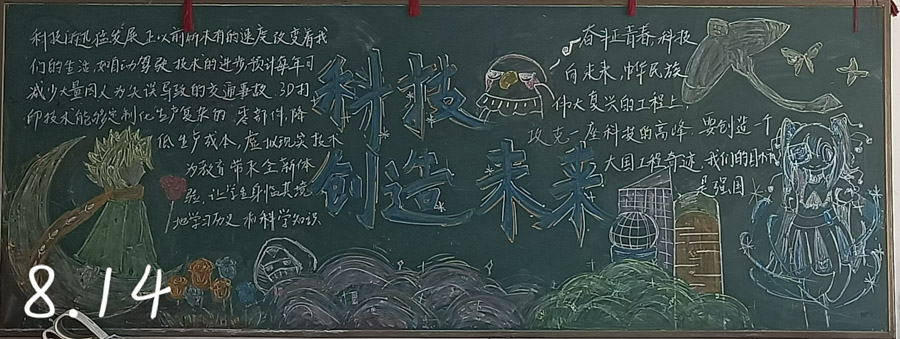 科技的迅猛发展正以前所未有的速度改变着我
们的生活,如自动驾驶技术的进步预计每年可
减少大量因人为失误导致的交通事故,3D打
印技术能够定制化生产复杂的零部件降
低生产成本,虚拟现实技术
为教育带来全新体
验,让学生身临其境
地学习历史和科学知识
科技
创造未来
奋斗正青春,科技
向未来,中华民族
伟大复兴的工程上,
攻克一座科技的高峰,要创造一个
大国工程奇迹,我们的目标
是强国
8.14